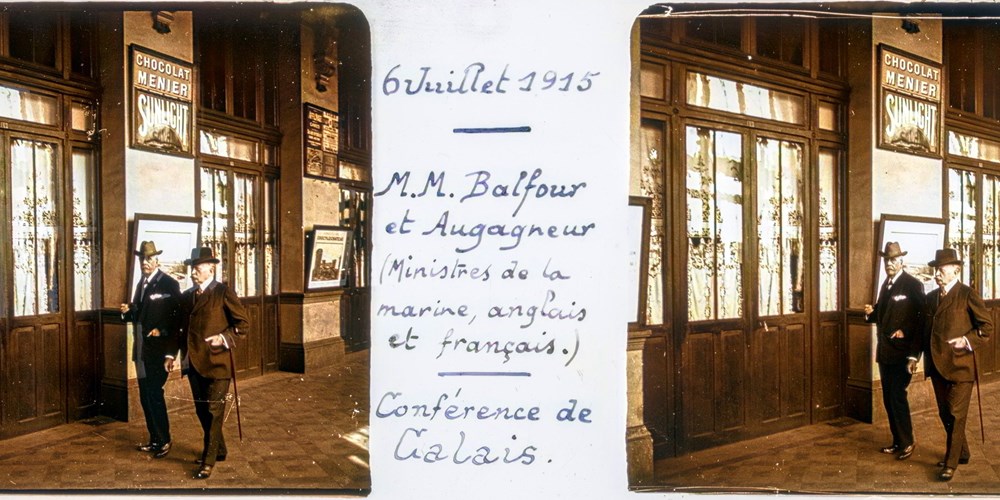 CHOCOLAT
MENIER
SUNLIGHT
6 Juillet 1915
M.M. Balfour
et Augagneur
(Ministres de la
marine, anglais
et français.)
Conférence de
Calais.
CHOCOLAT
MENIER
SUNLIGHT